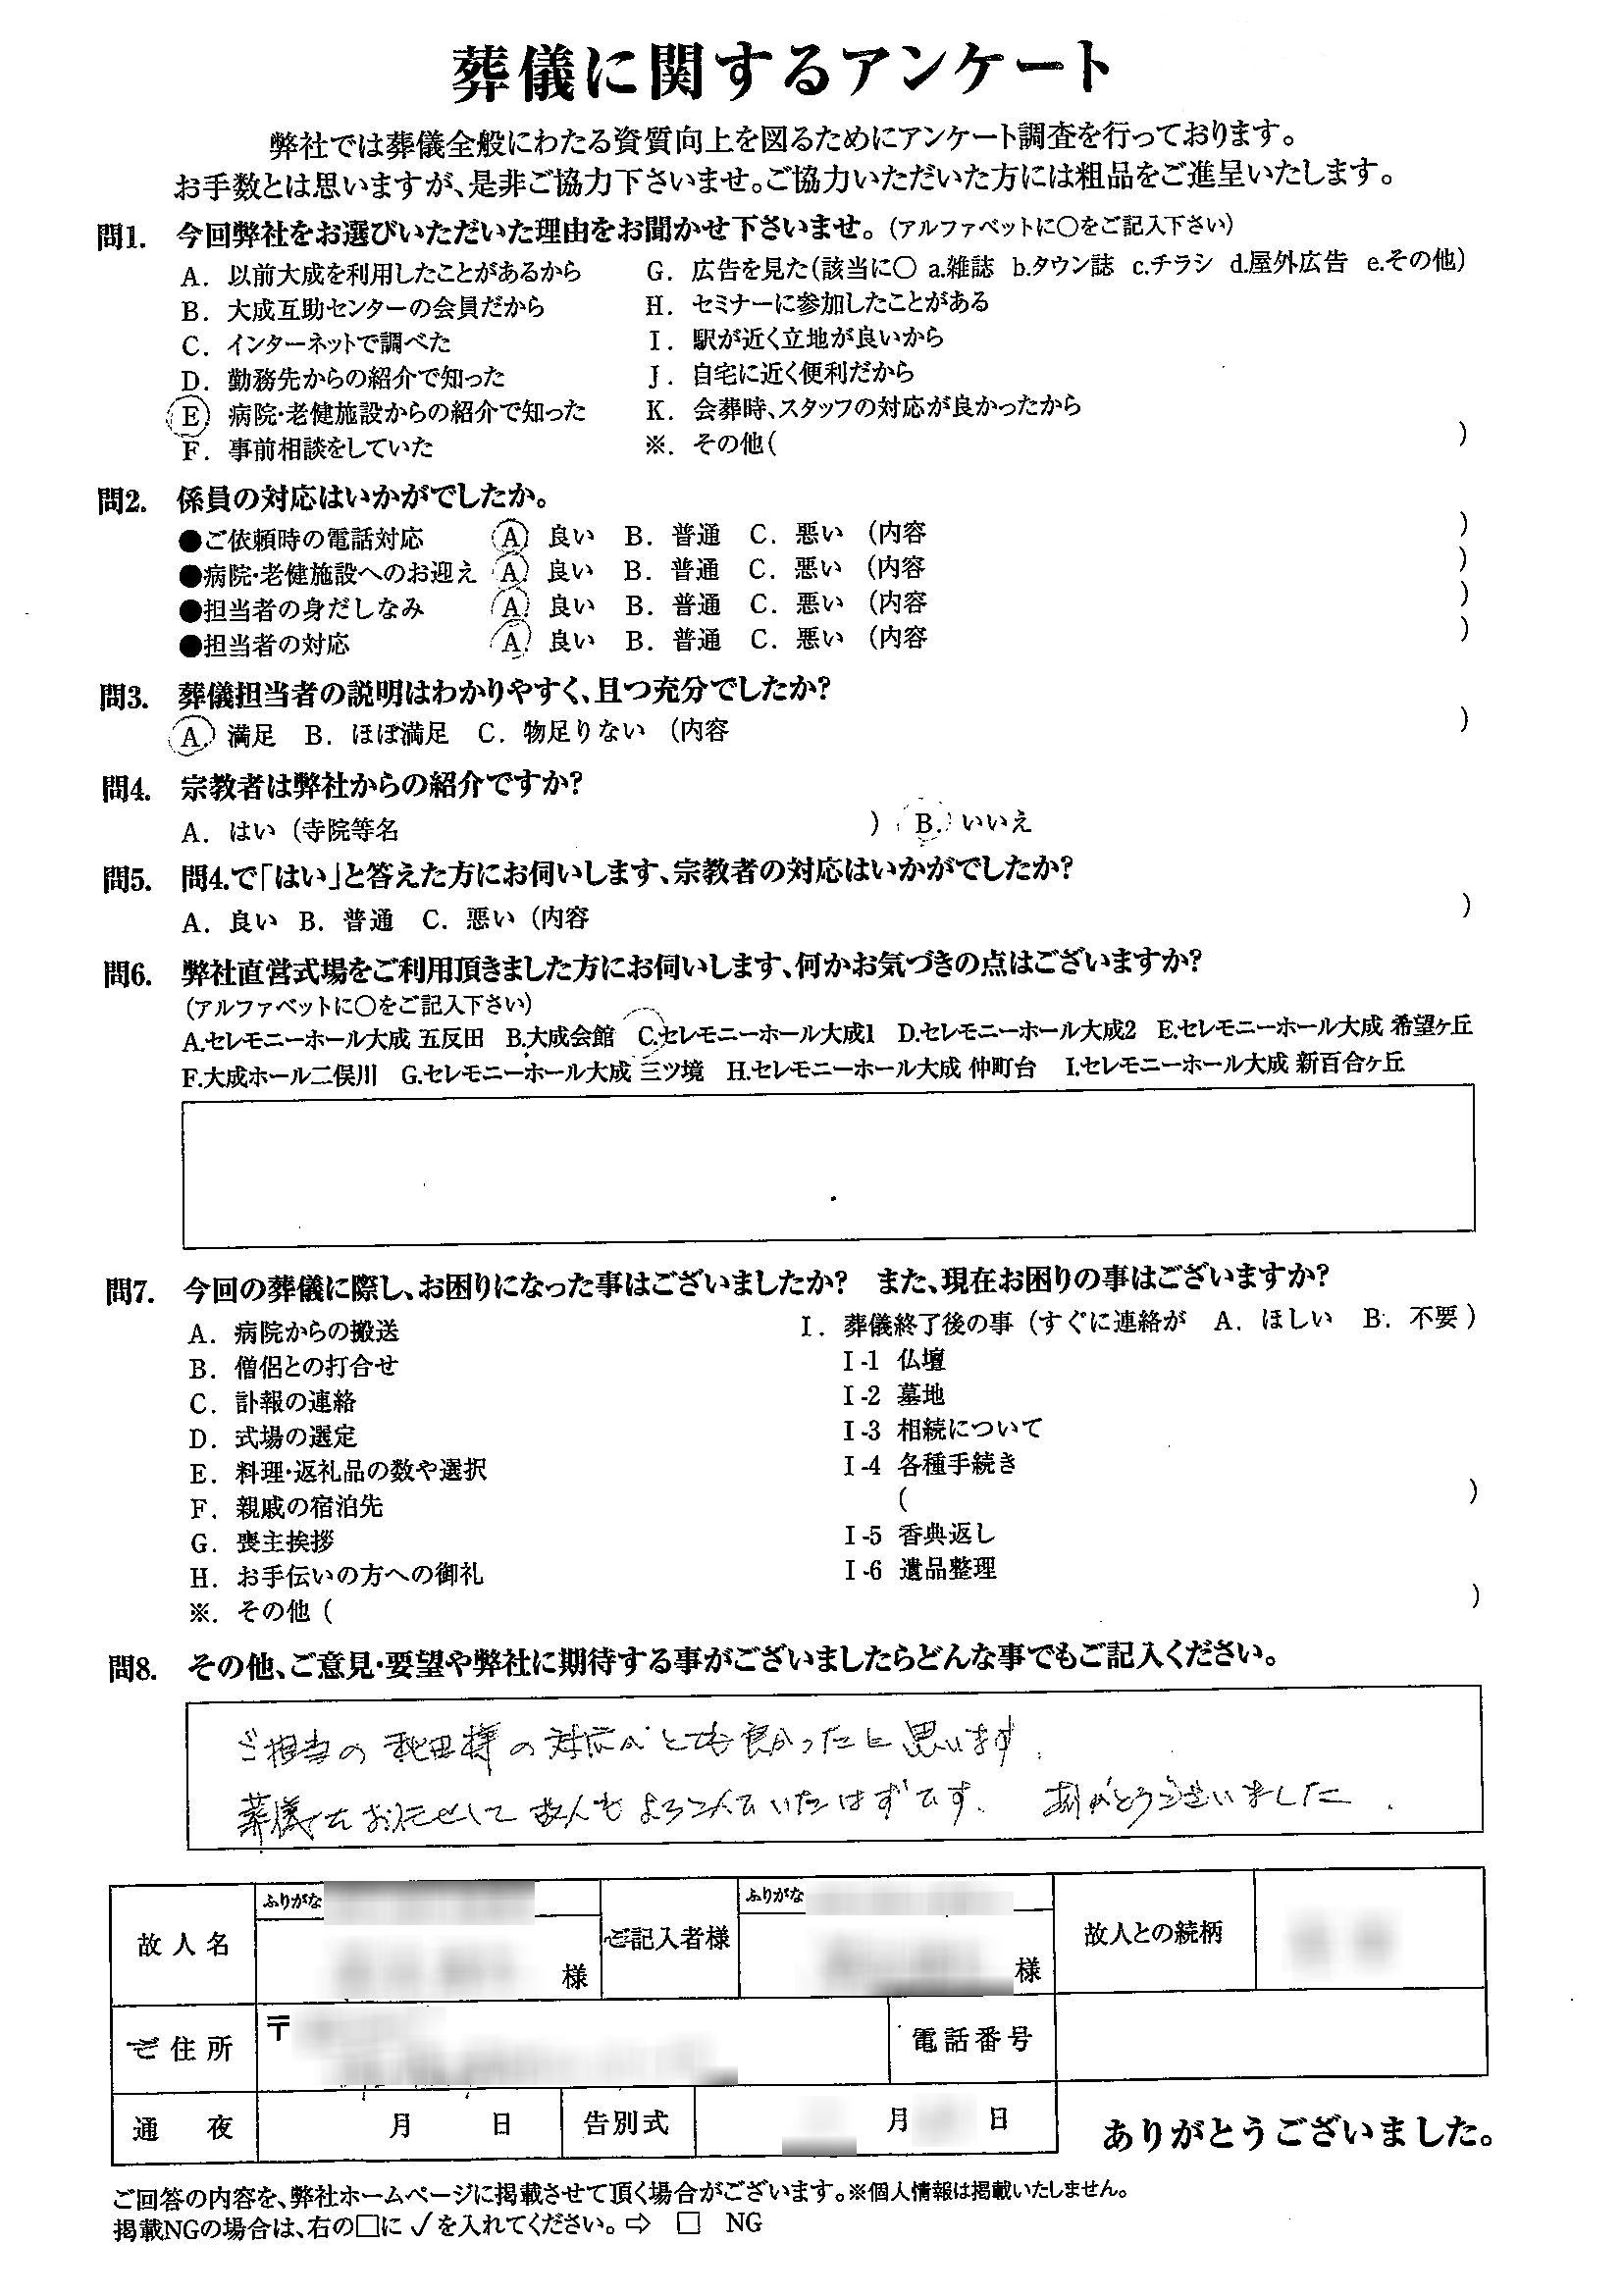 葬儀に関するアンケート
弊社では葬儀全般にわたる資質向上を図るためにアンケート調査を行っております。
お手数とは思いますが、是非ご協力下さいませ。ご協力いただいた方には粗品をご進呈いたします。
問1. 今回弊社をお選びいただいた理由をお聞かせ下さいませ。(アルファベットに〇をご記入下さい)
A. 以前大成を利用したことがあるから G. 広告を見た(該当に〇 a.雑誌 b.タウン誌 c.チラシ d.屋外広告 e.その他)
B. 大成互助センターの会員だから H. セミナーに参加したことがある
C. インターネットで調べた I. 駅が近く立地が良いから
D. 勤務先からの紹介で知った J. 自宅に近く便利だから
E 病院・老健施設からの紹介で知った K. 会葬時、スタッフの対応が良かったから
F. 事前相談をしていた ※. その他( )
問2. 係員の対応はいかがでしたか。
●ご依頼時の電話対応 A. 良い B. 普通 C. 悪い (内容 )
●病院・老健施設へのお迎え A. 良い B. 普通 C. 悪い (内容 )
●担当者の身だしなみ A. 良い B. 普通 C. 悪い (内容 )
●担当者の対応 A. 良い B. 普通 C. 悪い (内容 )
問3. 葬儀担当者の説明はわかりやすく、且つ充分でしたか?
A. 満足 B. ほぼ満足 C. 物足りない (内容 )
問4. 宗教者は弊社からの紹介ですか?
A. はい (寺院等名 ) B. いいえ
問5. 問4.で「はい」と答えた方にお伺いします、宗教者の対応はいかがでしたか?
A. 良い B. 普通 C. 悪い (内容 )
問6. 弊社直営式場をご利用頂きました方にお伺いします、何かお気づきの点はございますか?
(アルファベットに〇をご記入下さい)
A.セレモニーホール大成 五反田 B.大成会館 C.セレモニーホール大成1 D.セレモニーホール大成2 E.セレモニーホール大成 希望ヶ丘
F.大成ホール二俣川 G.セレモニーホール大成 三ツ境 H.セレモニーホール大成 仲町台 I.セレモニーホール大成 新百合ヶ丘
問7. 今回の葬儀に際し、お困りになった事はございましたか? また、現在お困りの事はございますか?
A. 病院からの搬送 I. 葬儀終了後の事 (すぐに連絡が A. ほしい B. 不要 )
B. 僧侶との打合せ I-1 仏壇
C. 訃報の連絡 I-2 墓地
D. 式場の選定 I-3 相続について
E. 料理・返礼品の数や選択 I-4 各種手続き
F. 親戚の宿泊先 ( )
G. 喪主挨拶 I-5 香典返し
H. お手伝いの方への御礼 I-6 遺品整理
※. その他 ( )
問8. その他、ご意見・要望や弊社に期待する事がございましたらどんな事でもご記入ください。
ご担当の秋田様の対応がとても良かったと思います.
葬儀をお任せして故人もよろこんでいたはずです. ありがとうございました.
故人名 ふりがな 様 ご記入者様 ふりがな 様 故人との続柄
ご住所 〒 電話番号
通 夜 月 日 告別式 月 日 ありがとうございました。
ご回答の内容を、弊社ホームページに掲載させて頂く場合がございます。※個人情報は掲載いたしません。
掲載NGの場合は、右の□に✓を入れてください。⇨ □ NG